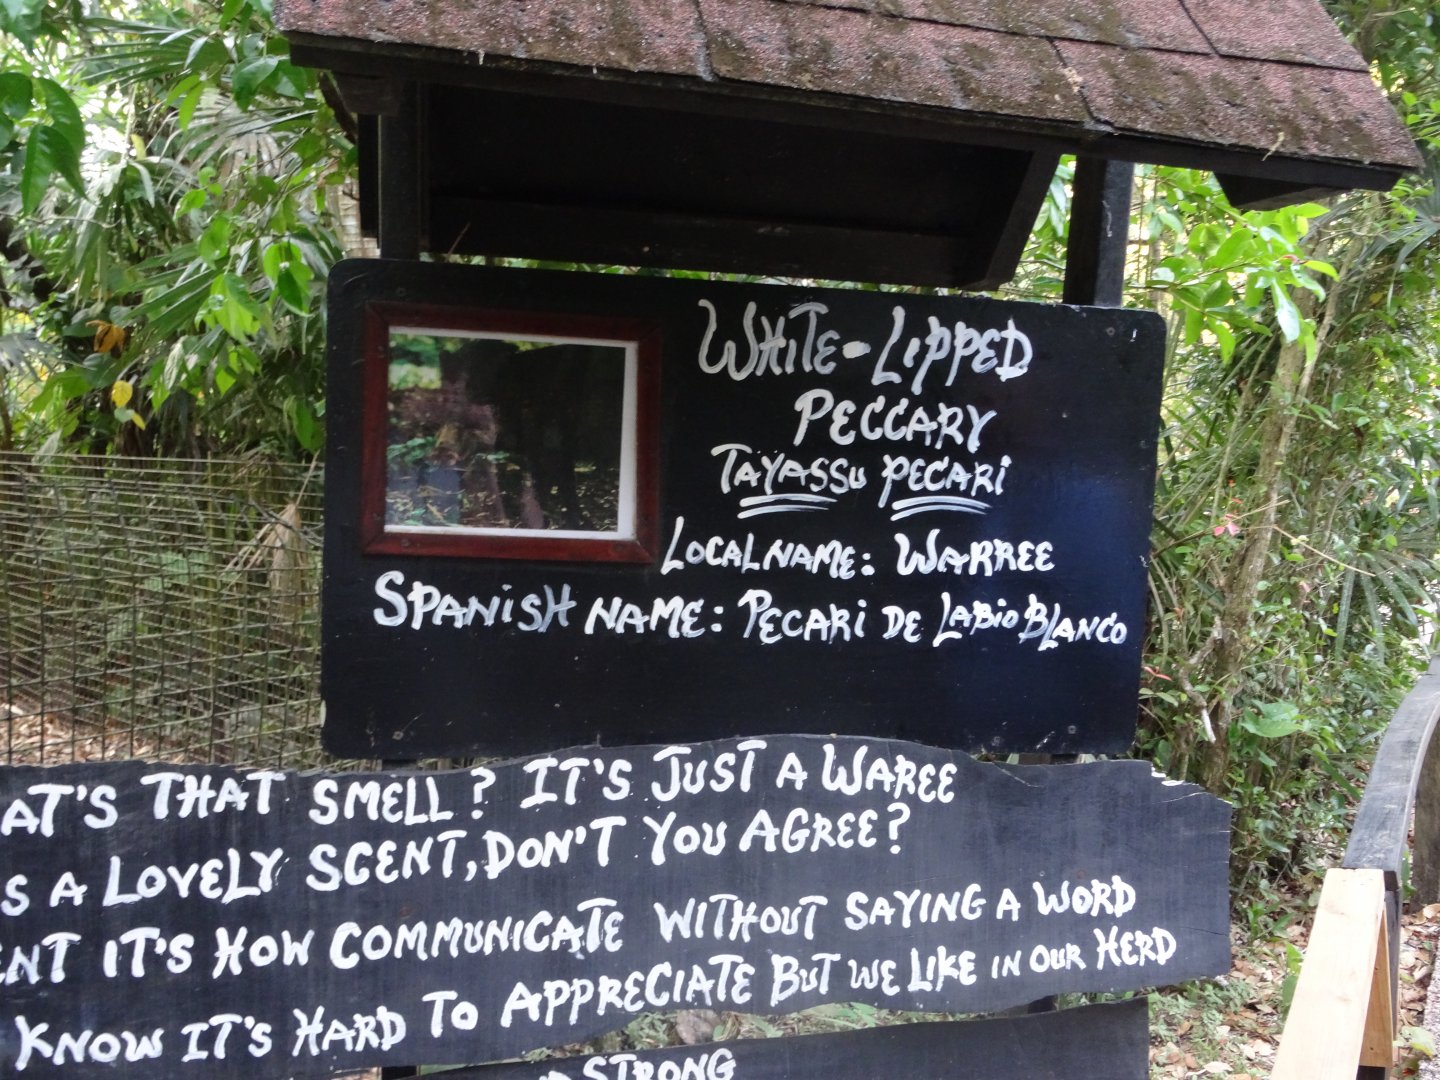 WHITE-LIPPED
PECCARY
TAYASSU PECARI
LOCAL NAME: WARREE
SPANISH NAME: PECARI DE LABIO BLANCO
AT'S THAT SMELL? IT'S JUST A WAREE
S A LOVELY SCENT, DON'T YOU AGREE?
ENT IT'S HOW COMMUNICATE WITHOUT SAYING A WORD
KNOW IT'S HARD TO APPRECIATE BUT WE LIKE IN OUR HERD
STRONG